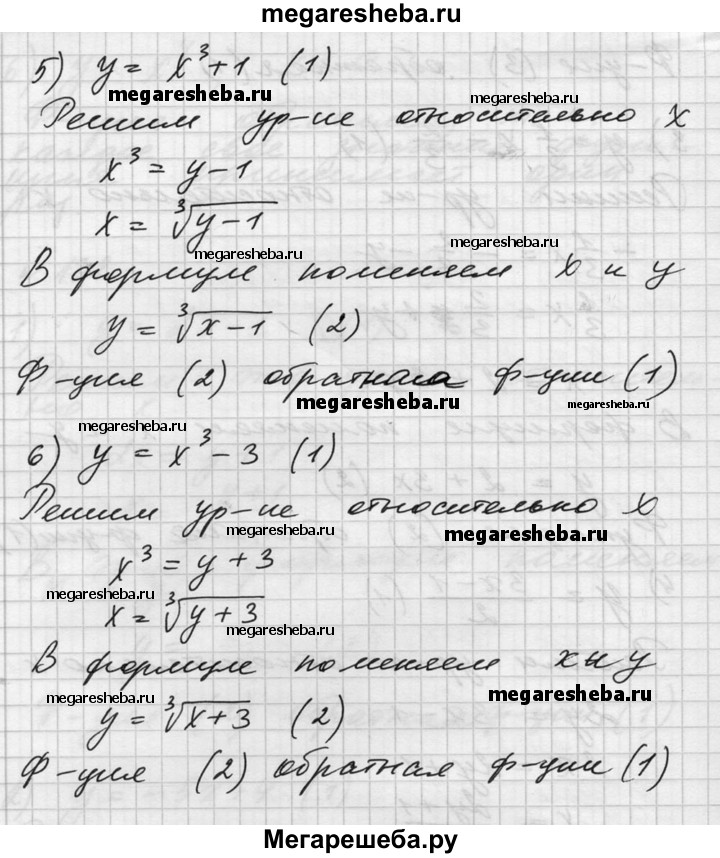 megaresheba.ru
5) y = x³+1 (1)
megaresheba.ru megaresheba.ru
Решим ур-ие относительно x
x³ = y-1
x = ∛(y-1)
megaresheba.ru megaresheba.ru
В формуле поменяем x и y
y = ∛(x-1) (2)
Ф-ция (2) обратная ф-ции (1)
megaresheba.ru megaresheba.ru
megaresheba.ru
6) y = x³-3 (1)
Решим ур-ие относительно x
megaresheba.ru megaresheba.ru
x³ = y+3
megaresheba.ru
x = ∛(y+3)
megaresheba.ru
В формуле поменяем x и y
megaresheba.ru
y = ∛(x+3) (2)
Ф-ция (2) обратная ф-ции (1)
Мегарешеба.ру